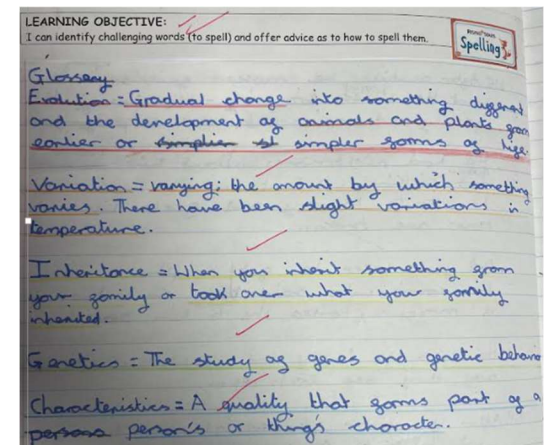 LEARNING OBJECTIVE:
I can identify challenging words (to spell) and offer advice as to how to spell them.
Spelling
Glossary
Evolution = Gradual change into something different
and the development of animals and plants from
earlier or simplier st simpler forms of life.
Variation = varying: the amount by which something
varies. There have been slight variations in
temperature.
Inheritance = When you inherit something from
your family or took over what your family
inherited.
Genetics = The study of genes and genetic behavio
Characteristics = A quality that forms part of a
persons person's or thing's character.